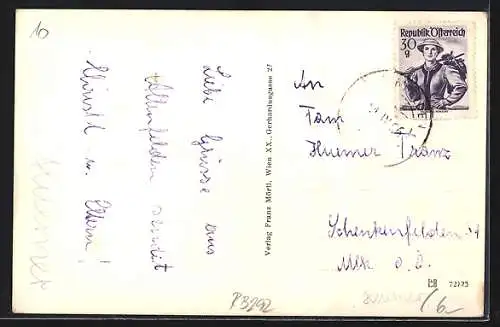 10
Liebe Grüsse aus
Altenfelden sendet
Christl u. Eltern!
Verlag Franz Mörtl, Wien XX., Gerhardusgasse 27
Republik Österreich
30
g
An
Fam
Huemer Franz
Schenkenfelden
Mlk o. Ö.
72/75